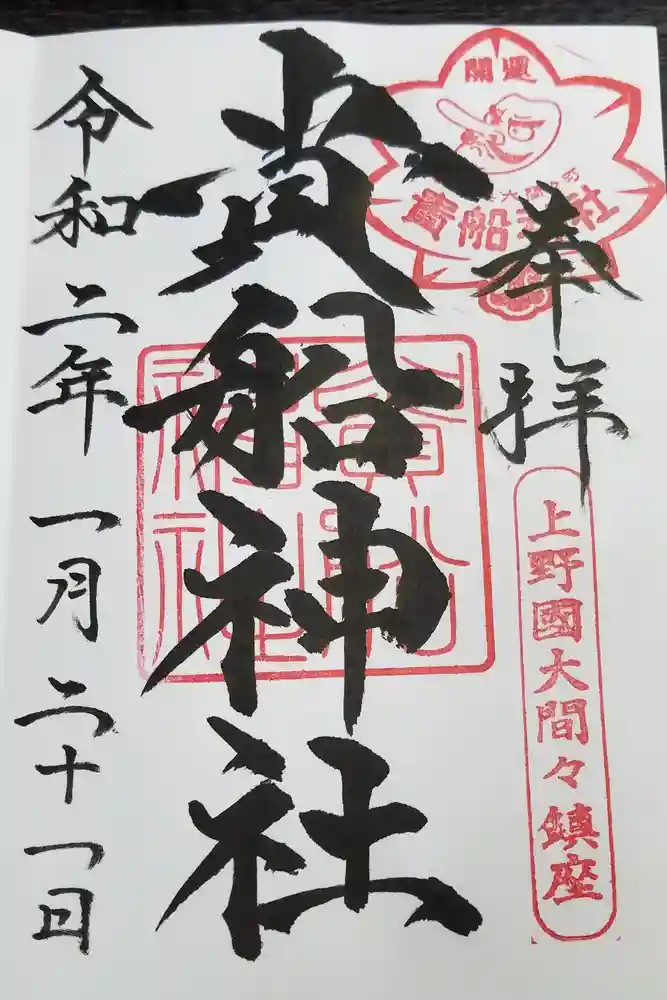 奉拝
開運
大間々町
貴船神社
上野國大間々鎮座
貴船神社
貴船神社
令和二年 一月 二十一日